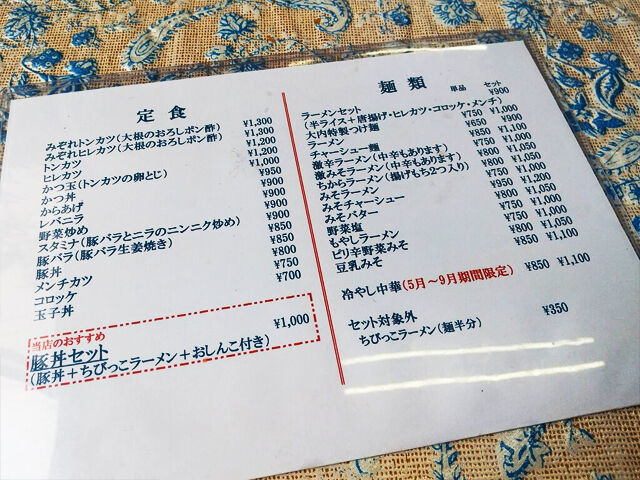 定食
みぞれトンカツ(大根のおろしポン酢) ¥1,300
みぞれヒレカツ(大根のおろしポン酢) ¥1,300
トンカツ ¥1,200
ヒレカツ ¥1,200
かつ玉(トンカツの卵とじ) ¥1,000
かつ丼 ¥950
からあげ ¥900
レバニラ ¥900
野菜炒め ¥900
スタミナ(豚バラとニラのニンニク炒め) ¥900
豚バラ(豚バラ生姜焼き) ¥850
豚丼 ¥850
メンチカツ ¥800
コロッケ ¥750
玉子丼 ¥700
当店のおすすめ
豚丼セット ¥1,000
(豚丼+ちびっこラーメン+おしんこ付き)
麺類
単品 セット
ラーメンセット ¥900
(半ライス+唐揚げ・ヒレカツ・コロッケ・メンチ)
大内特製つけ麺 ¥750 ¥1,000
ラーメン ¥650 ¥900
チャーシュー麺 ¥850 ¥1,100
激辛ラーメン(中辛もあります) ¥750 ¥1,000
激みそラーメン(中辛もあります) ¥800 ¥1,050
ちからラーメン(揚げもち2つ入り) ¥800 ¥1,050
みそラーメン ¥750 ¥1,000
みそチャーシュー ¥950 ¥1,200
みそバター ¥800 ¥1,050
野菜塩 ¥750 ¥1,000
もやしラーメン ¥750 ¥1,000
ピリ辛野菜みそ ¥800 ¥1,050
豆乳みそ ¥850 ¥1,100
冷やし中華(5月～9月期間限定) ¥850 ¥1,100
セット対象外
ちびっこラーメン(麺半分) ¥350